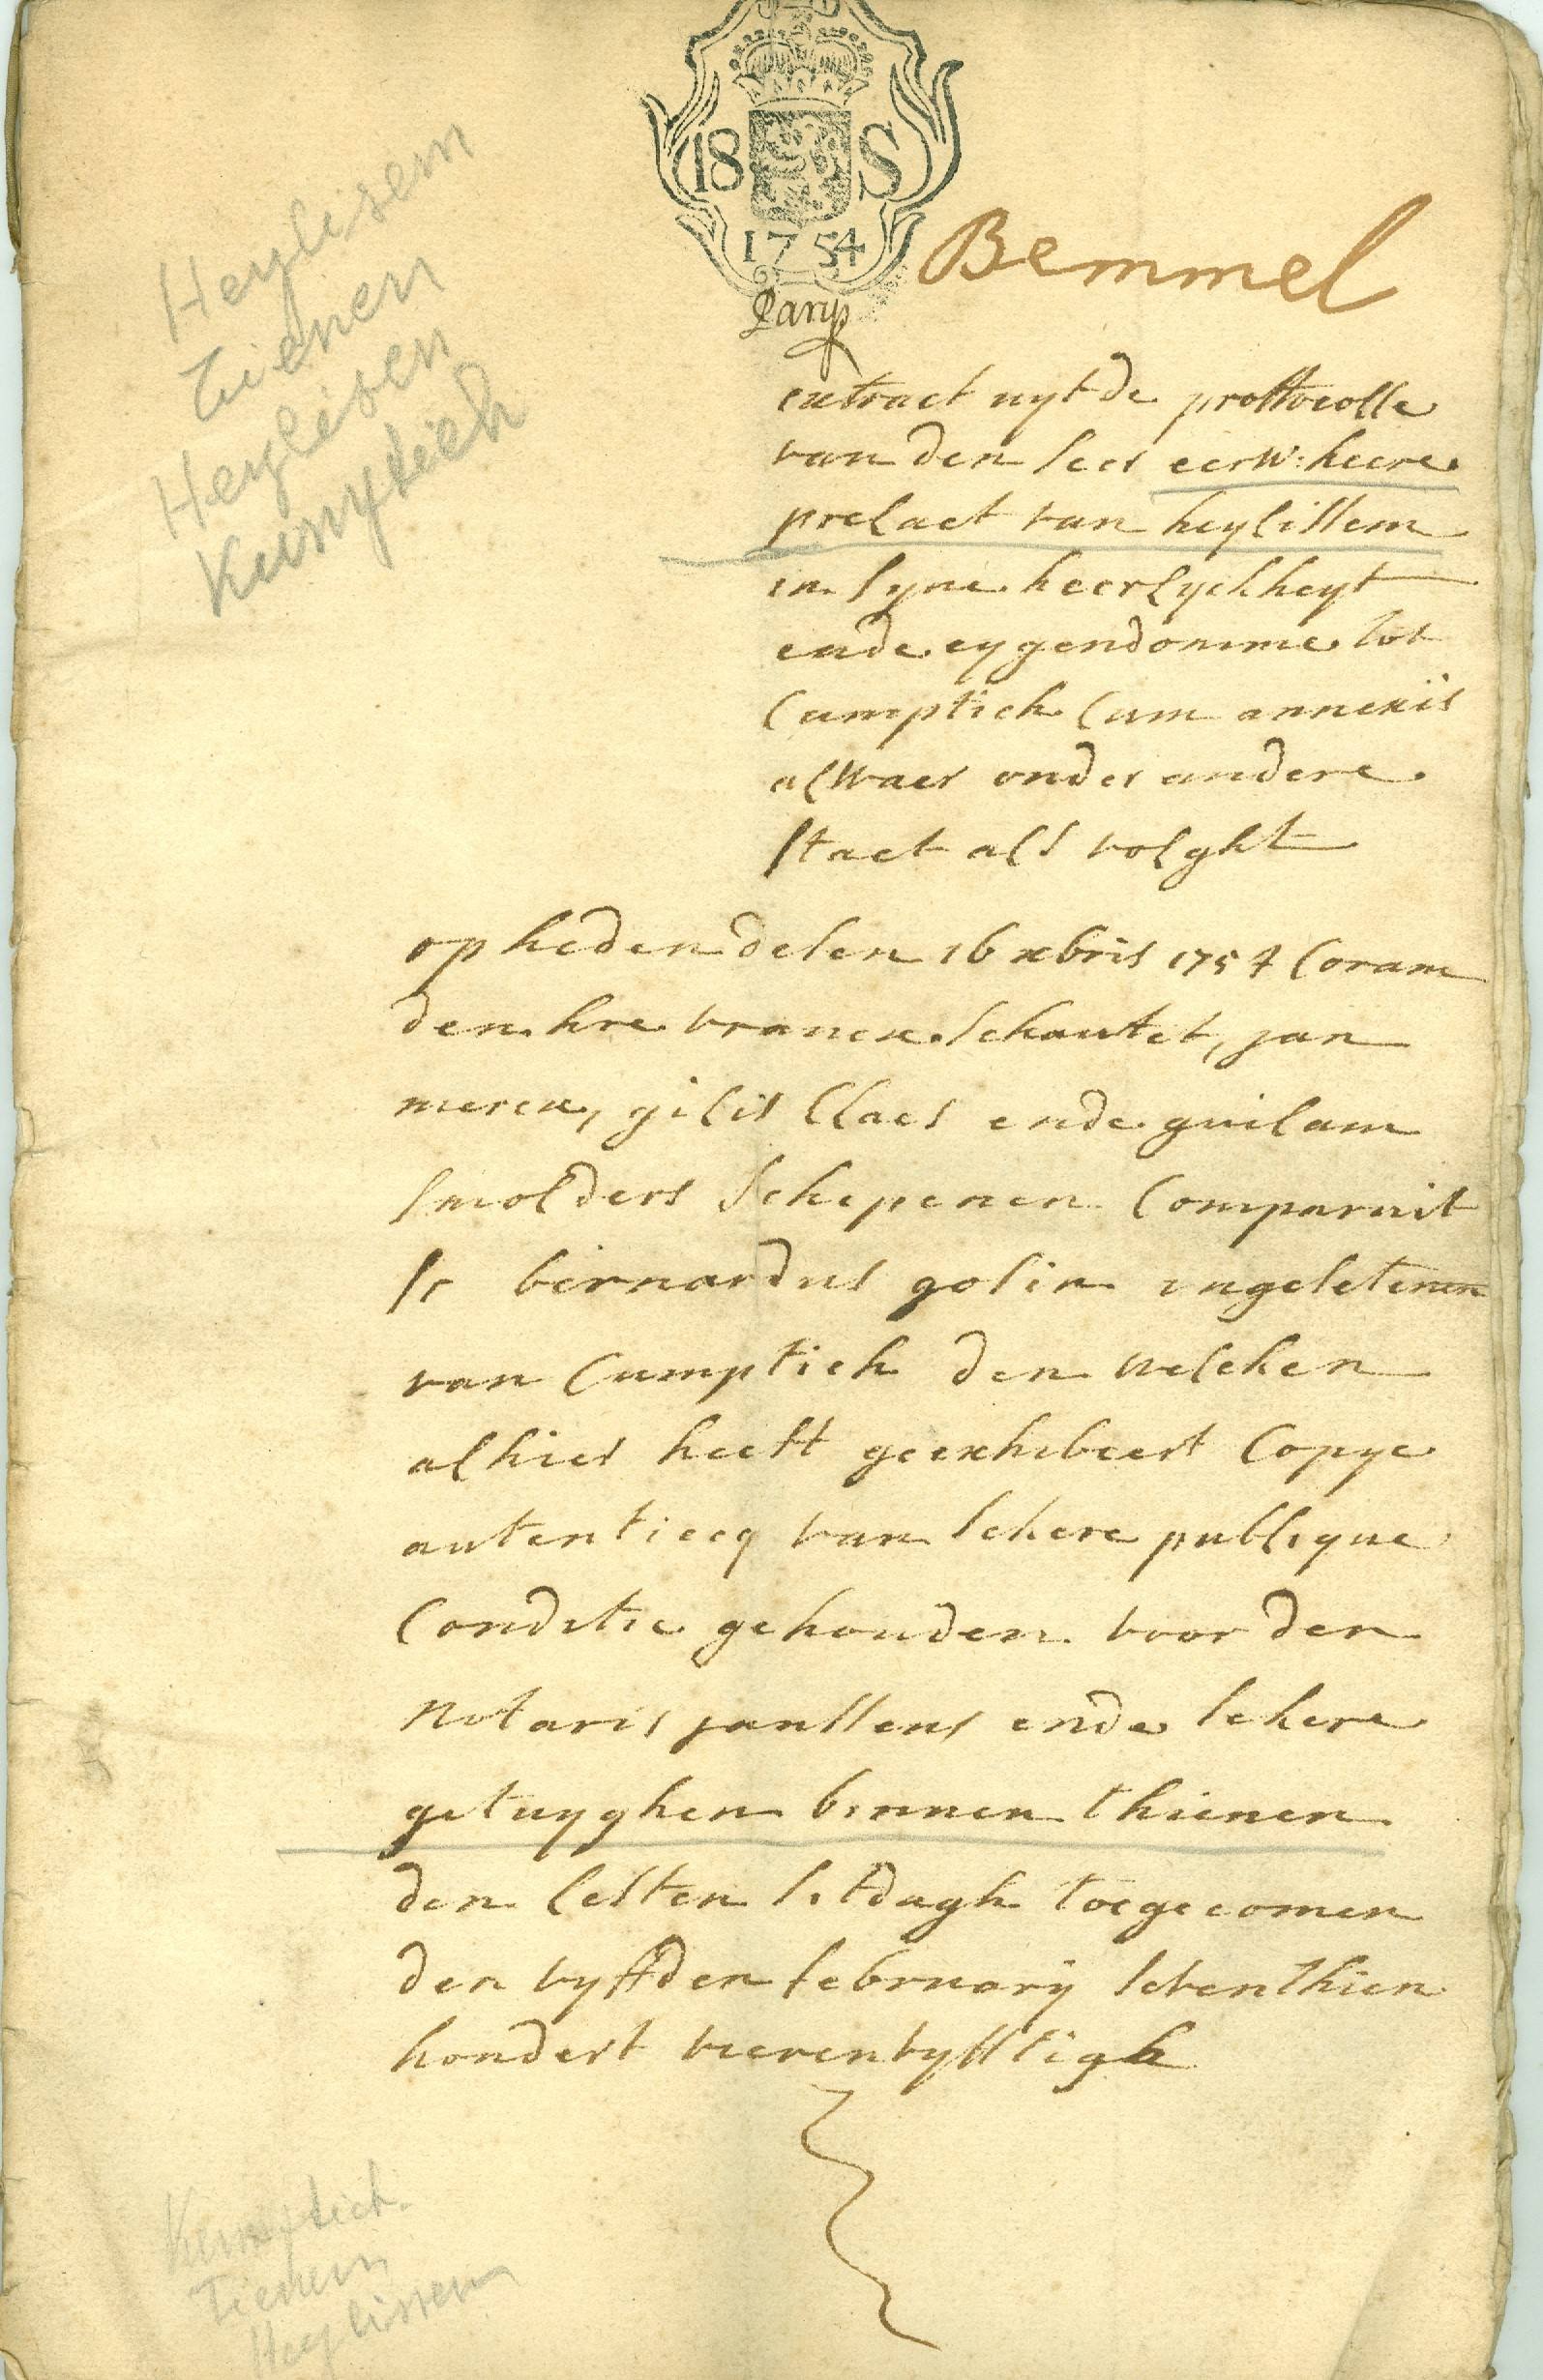 18 S
1754
Parys
Bemmel
Heylisem
Tienen
Heylisen
Kumptich
extract uyt de prottocolle
van den seer eerw: heere
prelaet van heylissem
in syne heerlyckheyt
ende eygendomme tot
Cumptich Cum annexis
alwaer onder andere
staet als volght
op heden desen 16 xbris 1754 Coram
den hre vrancx schautet, jan
mercx, gilis Claes ende guilam
smolders schepenen Comparuit
sr bernardus gosin ingesetenen
van Cumptich den welcken
alhier heeft geexhibeert Copye
autentiecq van sekere publique
Conditie gehouden voor den
notaris janssens ende sekere
getuyghen binnen thienen
den lesten sitdagh toegecomen
den vyftden february seventhien
hondert vierenvyfftigh
Kumptich
Tienen
Heylissem